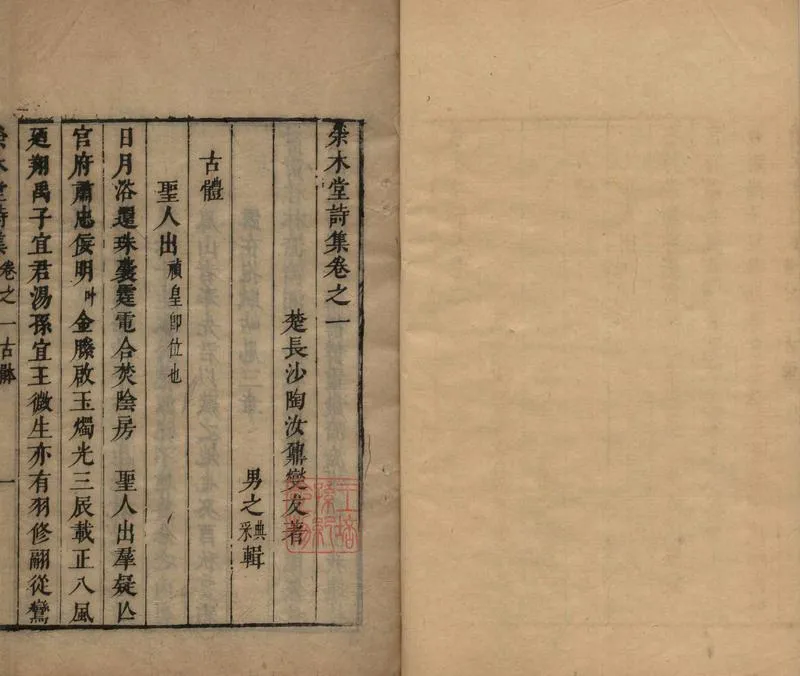 榮木堂詩集卷之一
楚長沙陶汝鼐燮友著
男之典采輯
古體
聖人出禎皇即位也
日月浴還珠囊霆電合焚陰房　聖人出羣疑亾
官府肅忠佞明叶金縢啟玉燭光三辰載正八風
𢌞翔禹子宜君湯孫宜王微生亦有羽修翮從鸞
木堂詩集　卷之一古體　一